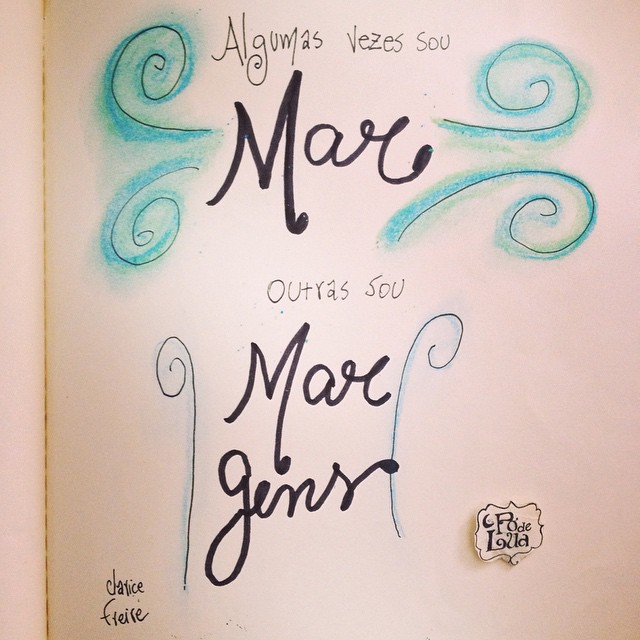 Algumas vezes sou
Mar
outras sou
Mar
gens
Pó de
Lua
clarice
freire